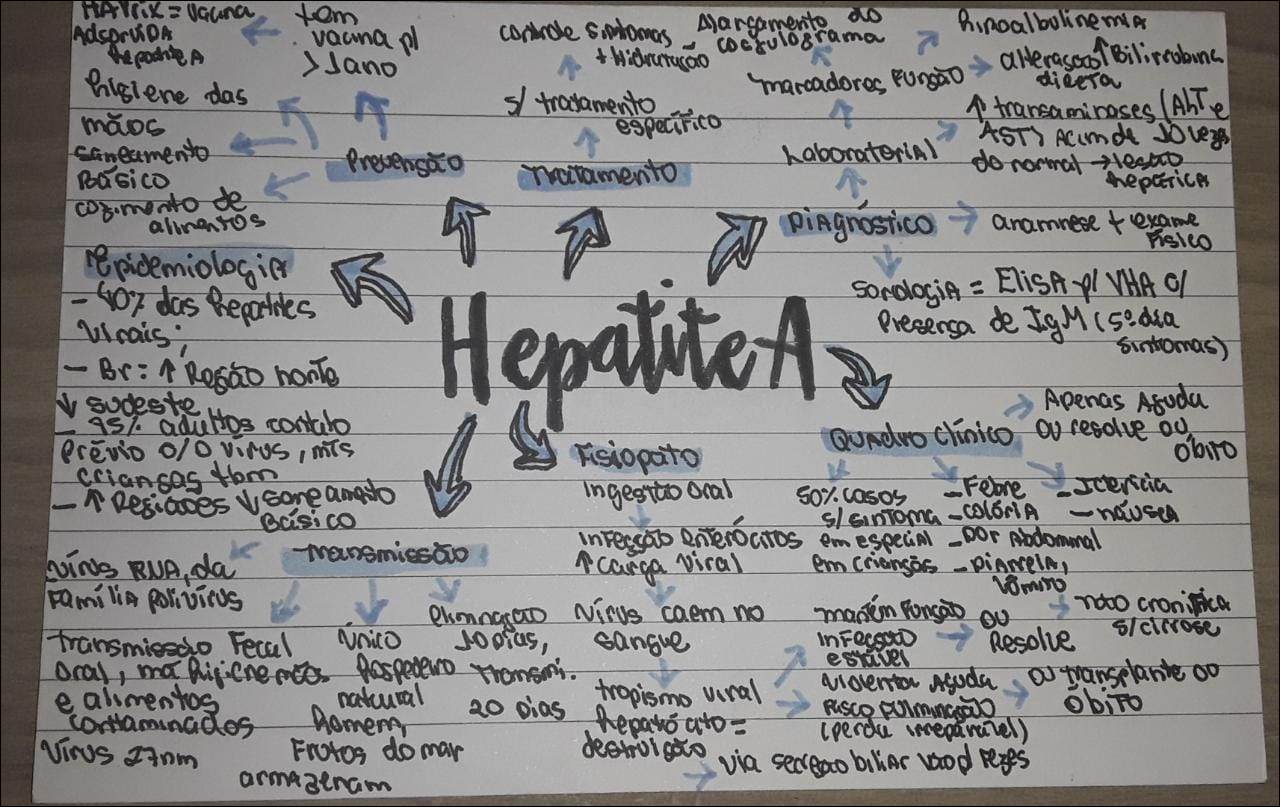 HAVrix = vacina
Adsorvida
Hepatite A
tem
vacina p/
> 1 ano
higiene das
mãos
saneamento
Básico
cozimento de
alimentos
Prevenção
controle sintomas
+ Hidratação
s/ tratamento
específico
Tratamento
Alargamento do
coagulograma
Hipoalbulinemia
marcadores Função
alteração ↑ Bilirrubina
direta
Laboratorial
↑ transaminases (AlT e
AST) Acima de 10 vezes
do normal → lesão
hepática
Diagnóstico
anamnese + exame
Físico
sorologia = Elisa p/ VHA c/
Presença de IgM (5º dia
sintomas)
Hepatite A
Epidemiologia
- 40% das Hepatites
Virais;
- Br: ↑ Região norte
↓ sudeste
- 95% adultos contato
Prévio c/ o vírus, mts
crianças tbm
- ↑ Regiões ↓ saneamento
Básico
Transmissão
Vírus RNA, da
Família polivírus
transmissão Fecal
oral, má higiene mãos
e alimentos
contaminados
Vírus 27nm
Único
Hospedeiro
natural
Homem,
Frutos do mar
armazenam
eliminação
10 dias,
transmi.
20 Dias
Fisiopato
Ingestão oral
Infecção enterócitos
↑ carga viral
Vírus caem no
sangue
tropismo viral
Hepatócito =
destruição
→ via secreção biliar vão p/ Fezes
mantém Função
Infecção
estável
ou
Resolve
não cronifica
s/ cirrose
Violenta Aguda
Risco Fulminação
(perda irreparável)
ou transplante ou
Óbito
Quadro Clínico
Apenas Aguda
ou resolve ou
Óbito
50% casos
s/ sintoma
em especial
em crianças
- Febre
- colúria
- Dor Abdominal
- Diarreia,
vômito
- Icterícia
- náusea